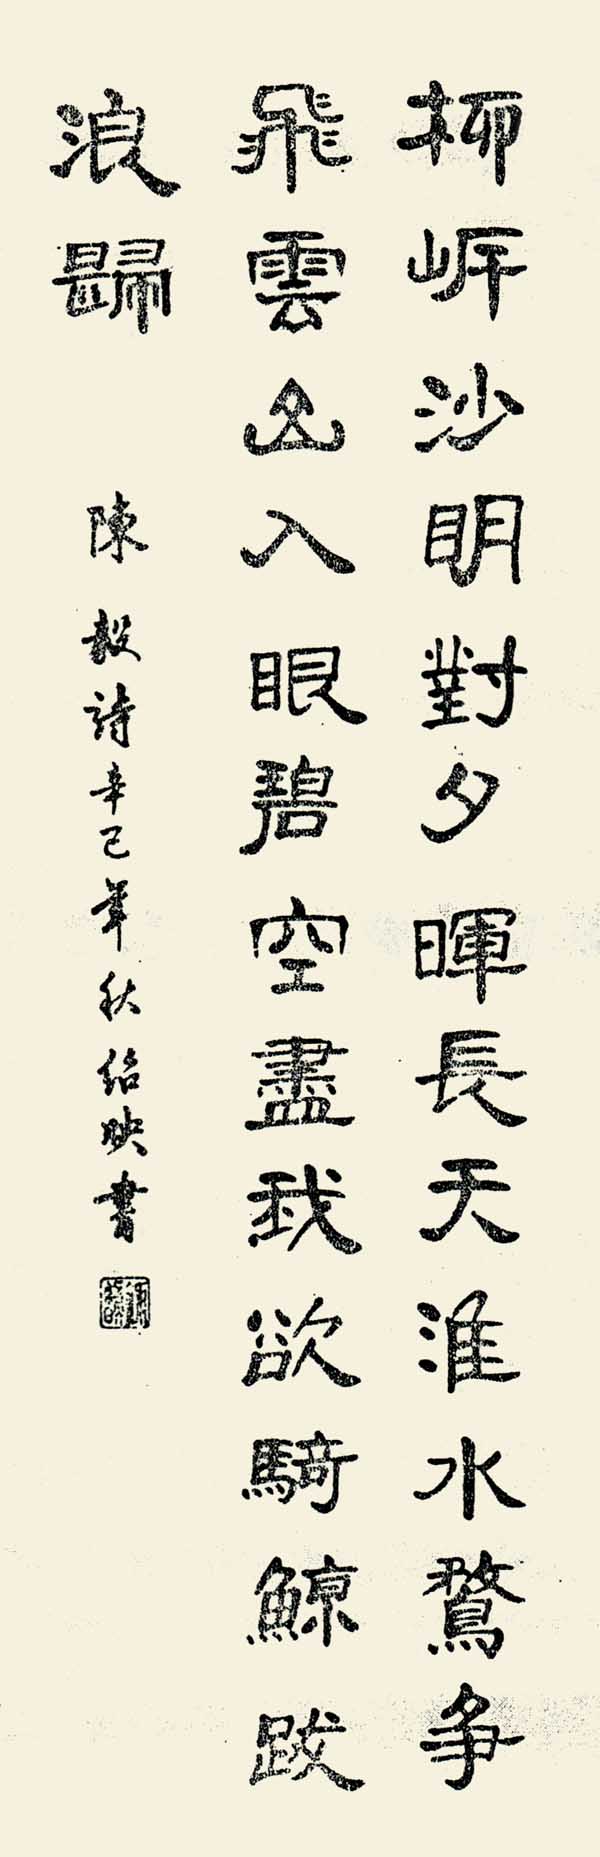 柳岸沙明對夕暉長天淮水鶩爭
飛雲山入眼碧空盡我欲騎鯨跋
浪歸
陳毅詩辛巳年秋紹映書